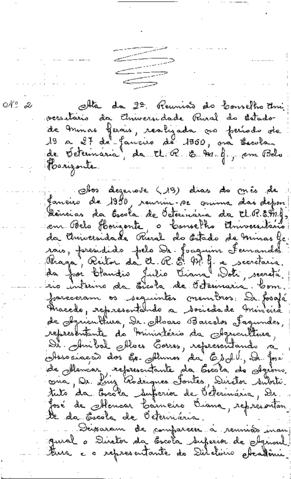 Nº 2 Ata da 2ª. Reunião do Conselho Uni-
versitário da Universidade Rural do Estado
de Minas Gerais, realizada no período de
19 a 27 de Janeiro de 1950, na Escola
de Veterinária, da U.R.E.M.G., em Belo
Horizonte.
Aos dezenove (19) dias do mês de
Janeiro de 1950, reuniu-se numa das depen-
dências da Escola de Veterinária da U.R.E.M.G.
em Belo Horizonte, o Conselho Universitário
da Universidade Rural do Estado de Minas Ge-
rais, presidido pelo Dr. Joaquim Fernandes
Braga, Reitor da U.R.E.M.G. e secretaria-
da por Claudio Julio Viana, secretá-
rio interino da Escola de Veterinária. Com-
pareceram os seguintes membros: Dr. Josafá
Macedo, representando a sociedade Mineira
de Agricultura, Dr. Alvaro Barcelos Fagundes,
representante do Ministério da Agricultura,
Dr. Anibal Alves Torres, representando a
Associação dos Ex. Alunos da E.S.A.V., Dr. José
de Alencar, representante da Escola de Agrono-
mia, Dr. Luiz Rodrigues Fontes, Diretor substi-
tuto da Escola Superior de Veterinária, Dr.
José de Alencar Carneiro Viana, representan-
te da Escola de Veterinária.
Deixaram de comparecer à reunião inau-
gural o Diretor da Escola Superior de Agricul-
tura e o representante do Diretório Acadêmi-